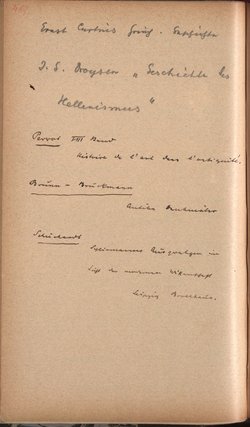 Ernst Curtius Griech. Geschichte
J. G. Droysen „Geschichte des
Hellenismus“
Perrot VIII Band
Histoire de l'art dans l'antiquité.
Brunn – Bruckmann
Antike Denkmäler
Schuchardt
Schliemanns Ausgrabungen im
Licht der
Leipzig Brockhaus.